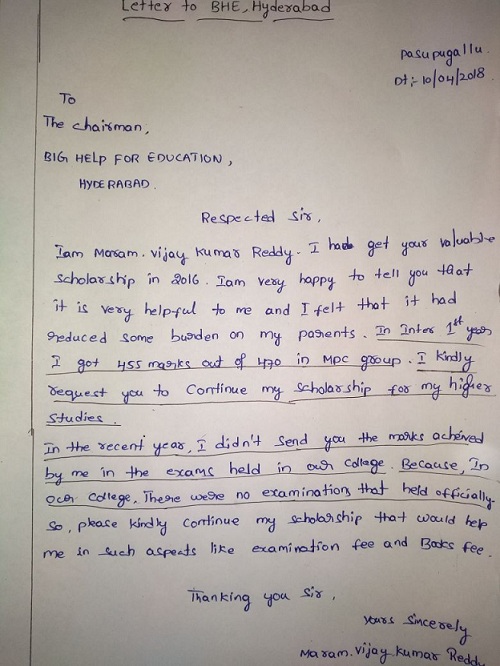 Letter to BHE, Hyderabad
Pasupugallu.
Dt:- 10/04/2018.
To
The chairman,
BIG HELP FOR EDUCATION,
HYDERABAD.
Respected Sir,
Iam Maram. vijay kumar Reddy. I had get your valuable
scholarship in 2016. Iam very happy to tell you that
it is very helpful to me and I felt that it had
reduced some burden on my parents. In Inter 1st year
I got 455 marks out of 470 in MPC group. I kindly
request you to continue my scholarship for my higher
studies.
In the recent year, I didn't send you the marks acheived
by me in the exams held in our college. Because, In
our college, There were no examination that held officially.
so, please kindly continue my scholarship that would help
me in such aspects like examination fee and Books fee.
Thanking you Sir,
yours sincerely
Maram. vijay kumar Reddy